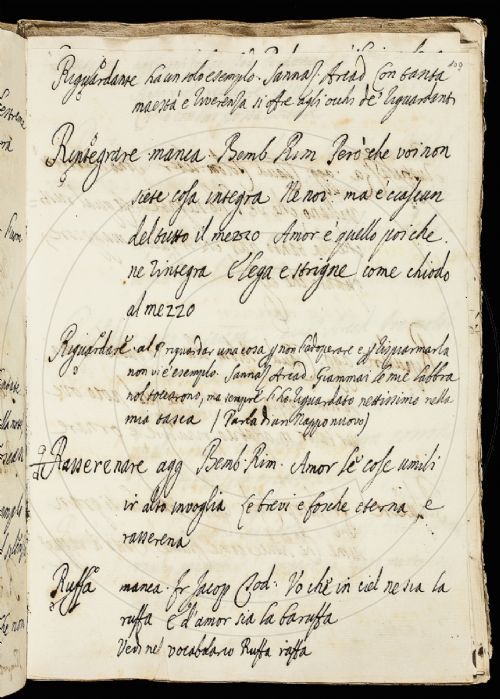 109
Riguardante ha un solo esempio. Sannaz. Arcad Con tanta
maestà e riverenza si ofre agli ochi de' riguardanti
Rintegrare manca. Bemb. Rim Però che voi non
siete cosa integra Ne noi. ma è ciascun
del tutto il mezzo Amor è quello poi che.
ne rintegra E lega e strigne come chiodo
al mezzo
Riguardare. al riguardar una cosa non adoperare e risparmiarla
non vi è esempio. Sannaz Arcad Giammai le mie labbra
nol toccarono, ma sempre l'ho riguardato nettissimo nella
mia tasca (Parla d'un Nappo nuovo)
Rasserenare agg Bemb. Rim. Amor le cose umili
ir alto invoglia Le brevi e fosche eterna, e
rasserena
Ruffa manca. Fr Jacop Tod. Vo che in ciel ne sia la
raffa E d'amor sia la baruffa
Vedi nel vocabulario Ruffa raffa